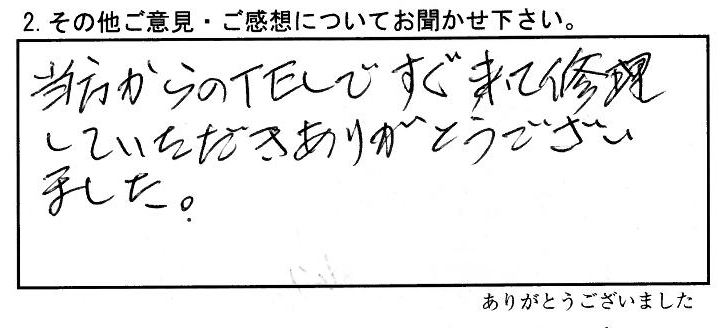 2. その他ご意見・ご感想についてお聞かせ下さい。
当方からのTELですぐ来て修理
していただきありがとうござい
ました。
ありがとうございました